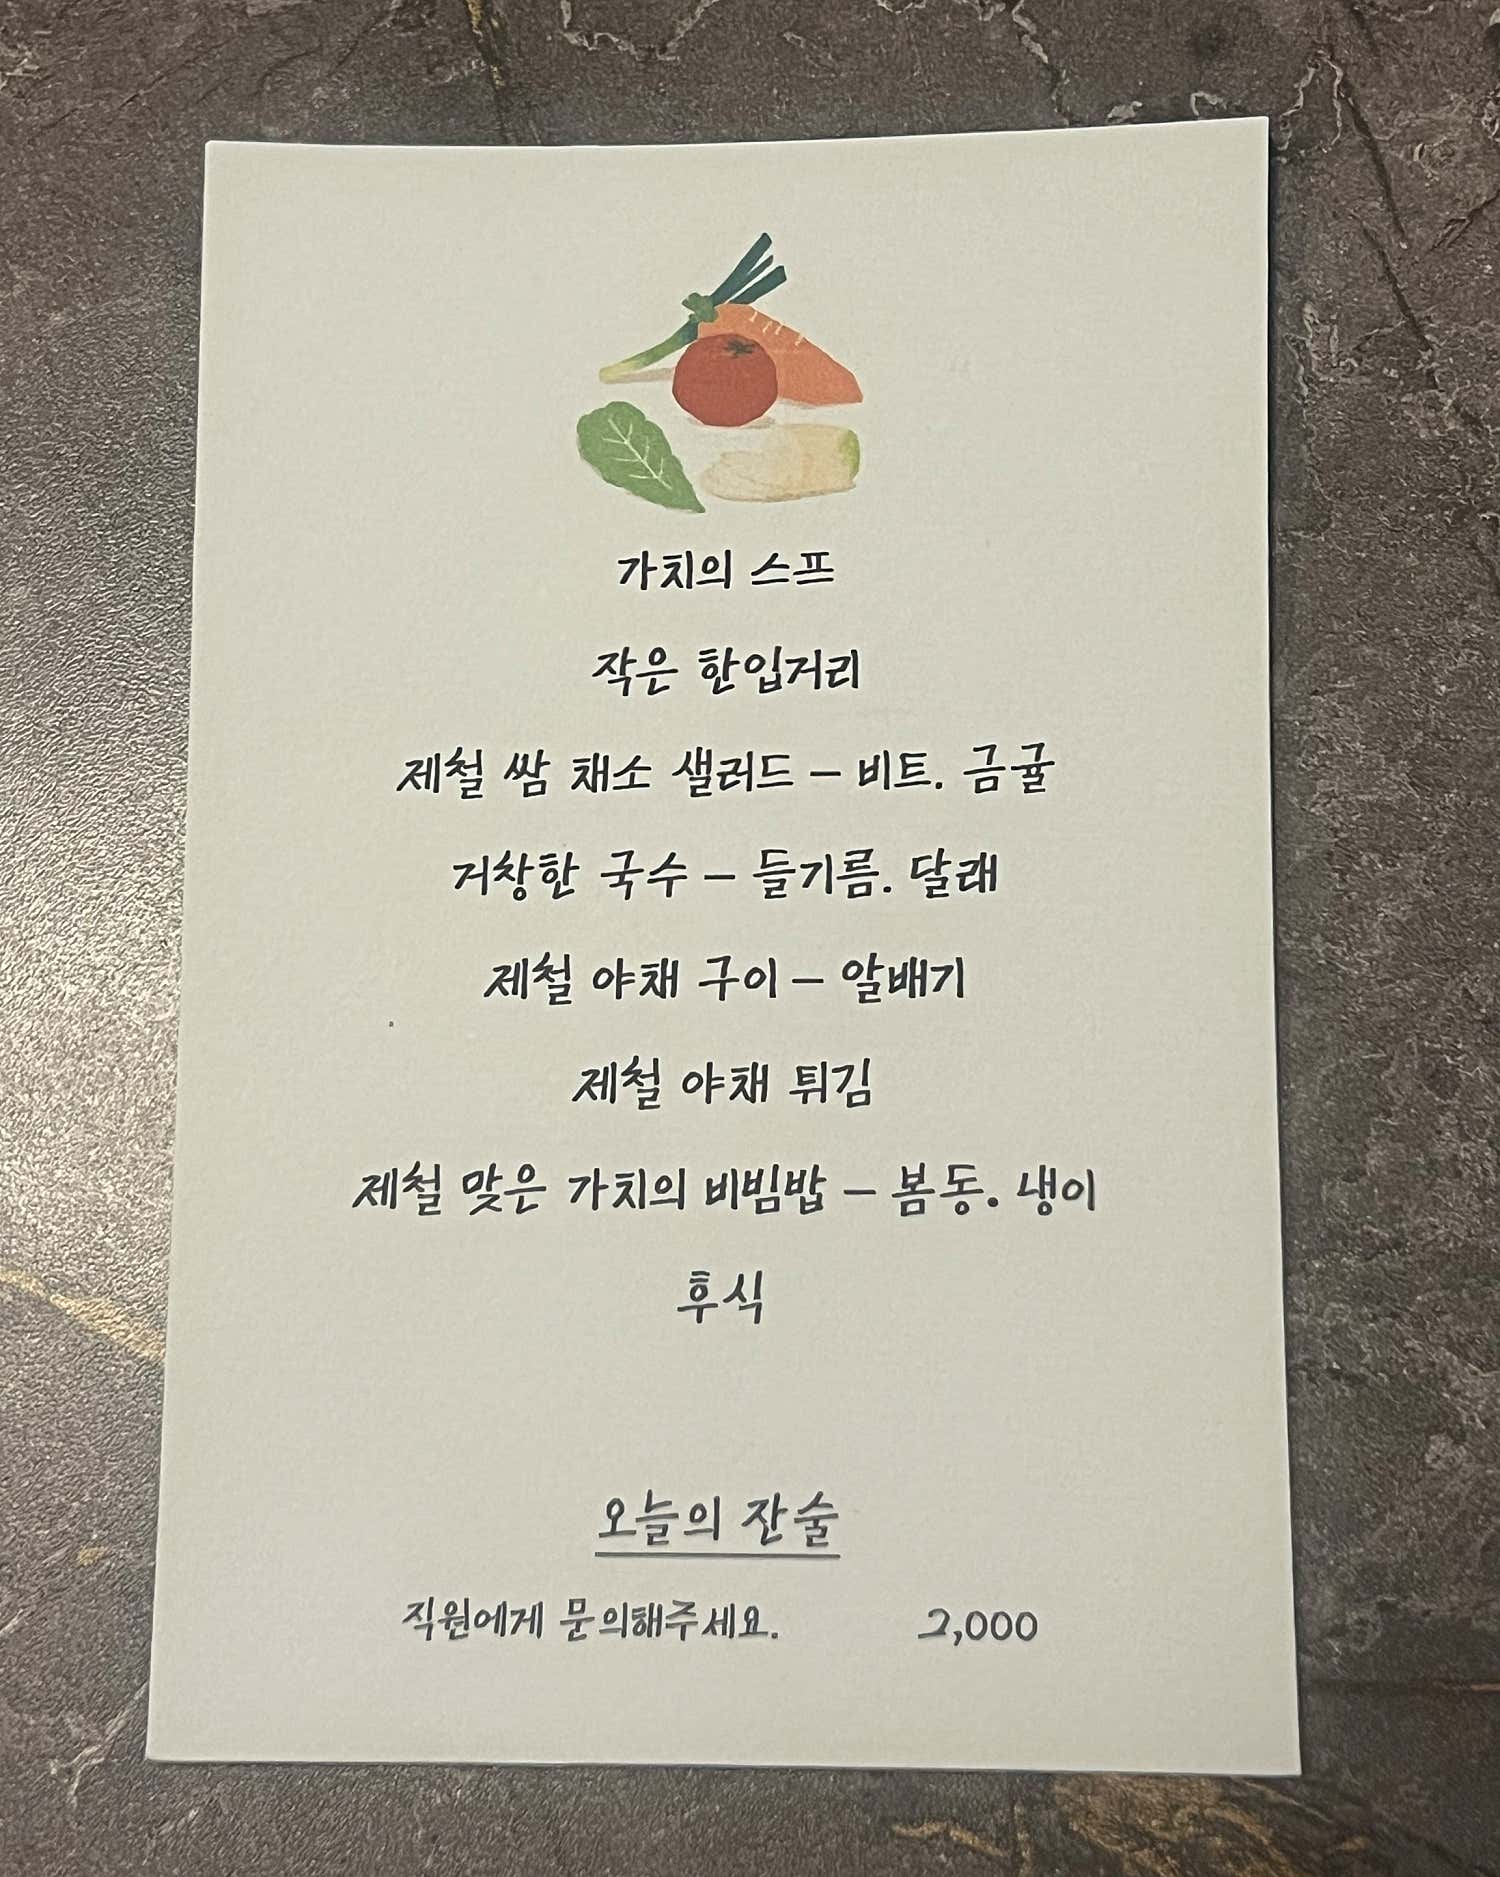 가치의 스프
작은 한입거리
제철 쌈 채소 샐러드 – 비트. 금귤
거창한 국수 – 들기름. 달래
제철 야채 구이 – 알배기
제철 야채 튀김
제철 맞은 가치의 비빔밥 – 봄동. 냉이
후식
오늘의 잔술
직원에게 문의해주세요. 2,000